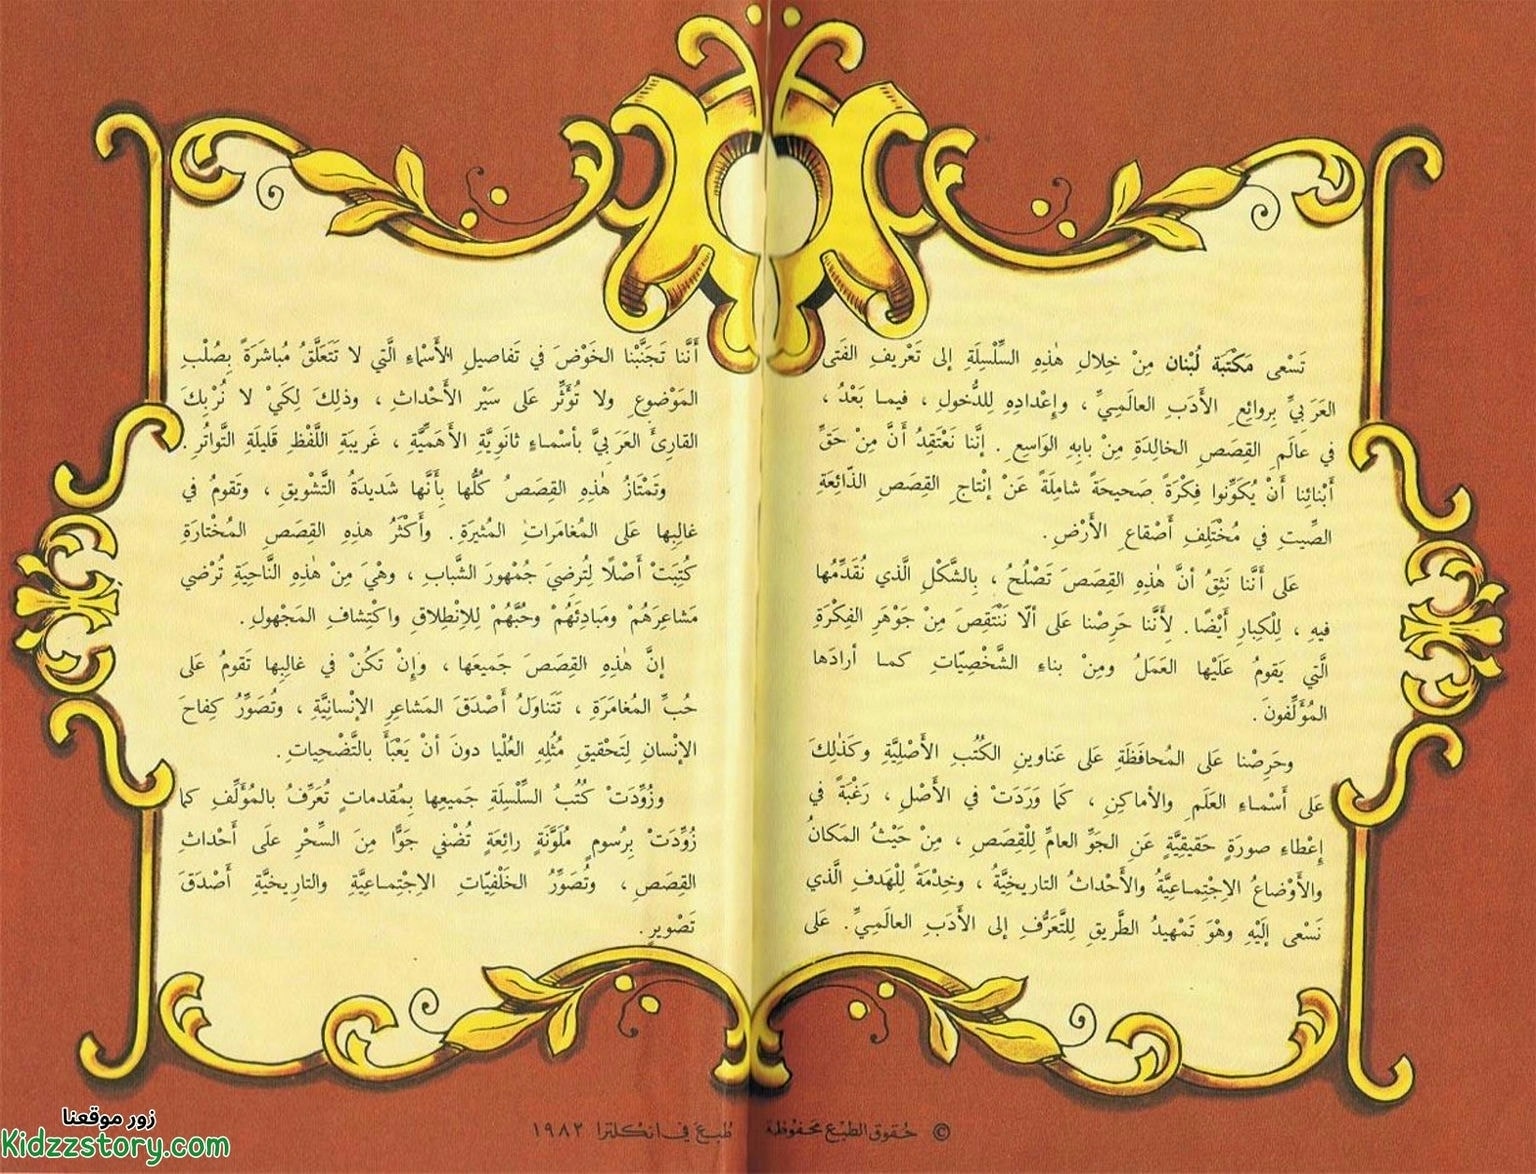 تَسْعى مَكْتَبَة لُبْنان مِنْ خِلالِ هٰذِهِ السِّلْسِلَةِ إلى تَعْريفِ الفَتى
العَرَبِيِّ بِروائِعِ الأَدَبِ العالَمِيِّ ، وإِعْدادِهِ لِلدُّخولِ ، فيما بَعْدُ ،
في عالَمِ القِصَصِ الخالِدَةِ مِنْ بابِهِ الوَاسِعِ . إنَّنا نَعْتَقِدُ أَنَّ مِنْ حَقِّ
أَبْنائِنا أَنْ يُكَوِّنوا فِكْرَةً صَحيحَةً شامِلَةً عَنْ إنْتاجِ القِصَصِ الذّائِعَةِ
الصِّيتِ في مُخْتَلِفِ أَصْقاعِ الأَرْضِ .
عَلى أَنَّنا نَثِقُ أنَّ هٰذِهِ القِصَصَ تَصْلُحُ ، بِالشَّكْلِ الَّذي نُقَدِّمُها
فيهِ ، لِلْكِبارِ أَيْضًا . لِأَنَّنا حَرِصْنا عَلى ألّا نَنْتَقِصَ مِنْ جَوْهَرِ الفِكْرَةِ
الَّتي يَقومُ عَلَيْها العَمَلُ ومِنْ بناءِ الشَّخْصِيّاتِ كما أرادَها
المُؤَلِّفونَ .
وحَرِصْنا عَلى المُحافَظَةِ عَلى عَناوينِ الكُتُبِ الأَصْلِيَّةِ وكَذٰلِكَ
عَلى أَسْماءِ العَلَمِ والأماكِنِ ، كَما وَرَدَتْ في الأَصْلِ ، رَغْبَةً في
إعْطاءِ صورَةٍ حَقيقِيَّةٍ عَنِ الجَوِّ العامِّ لِلْقِصَصِ ، مِنْ حَيْثُ المَكانُ
والأَوْضاعُ الاِجْتِماعِيَّةُ والأَحْداثُ التاريخِيَّةُ ، وخِدْمَةً لِلْهَدفِ الَّذي
نَسْعى إلَيْهِ وهْوَ تَمْهيدُ الطَّريقِ لِلتَّعَرُّفِ إلى الأَدَبِ العالَمِيِّ . عَلى
أَنَّنا تَجَنَّبْنا الخَوْضَ في تَفاصيلِ الأَسْماءِ الَّتي لا تَتَعَلَّقُ مُباشَرَةً بِصُلْبِ
المَوْضوعِ ولا تُؤَثِّر عَلى سَيْر الأَحْداثِ ، وذٰلِكَ لِكَيْ لا نُرْبِكَ
القارِئَ العَرَبِيَّ بأسْماءٍ ثانَوِيَّةِ الأَهَمِّيَّةِ ، غَريبَةِ اللَّفْظِ قَليلَةِ التَّواتُرِ .
وتَمْتازُ هٰذِهِ القِصَصُ كُلُّها بِأَنَّها شَديدَةُ التَّشْويقِ ، وتَقومُ في
غالِبِها عَلى المُغامَراتِ المُثيرَةِ . وأَكْثَرُ هذِهِ القِصَصِ المُخْتارَةِ
كُتِبَتْ أَصْلًا لِتُرضِيَ جُمْهورَ الشَّبابِ ، وهْيَ مِنْ هٰذِهِ النَّاحِيَةِ تُرْضي
مَشاعِرَهُمْ ومَبادِئَهُمْ وحُبَّهُمْ لِلاِنْطِلاقِ واكْتِشافِ المَجْهولِ .
إنَّ هٰذِهِ القِصَصَ جَميعَها ، وَإِنْ تَكُنْ في غالِبِها تَقومُ عَلى
حُبِّ المُغامَرَةِ ، تَتَناوَلُ أَصْدَقَ المَشاعِرِ الإنْسانِيَّةِ ، وتُصَوِّرُ كِفاحَ
الإنْسانِ لِتَحْقيقِ مُثُلِهِ العُلْيا دونَ أنْ يَعْبَأَ بالتَّضْحِياتِ .
وزُوِّدَتْ كُتُبُ السِّلْسِلَةِ جَميعِها بِمُقدماتٍ تُعَرِّفُ بالمُؤَلِّفِ كما
زُوِّدَتْ بِرُسومٍ مُلَوَّنَةٍ رائِعَةٍ تُضْفي جَوًّا مِنَ السِّحْرِ عَلَى أَحْداثِ
القِصَصِ ، وتُصَوِّرُ الخَلْفِيّاتِ الاِجْتِماعِيَّةِ والتارِيخيَّةِ أَصْدَقَ
تَصْويرٍ .
© حُقوق الطَبْع محفوظة
طُبعَ في انكلترا ١٩٨٢
زور موقعنا
Kidzzstory.com